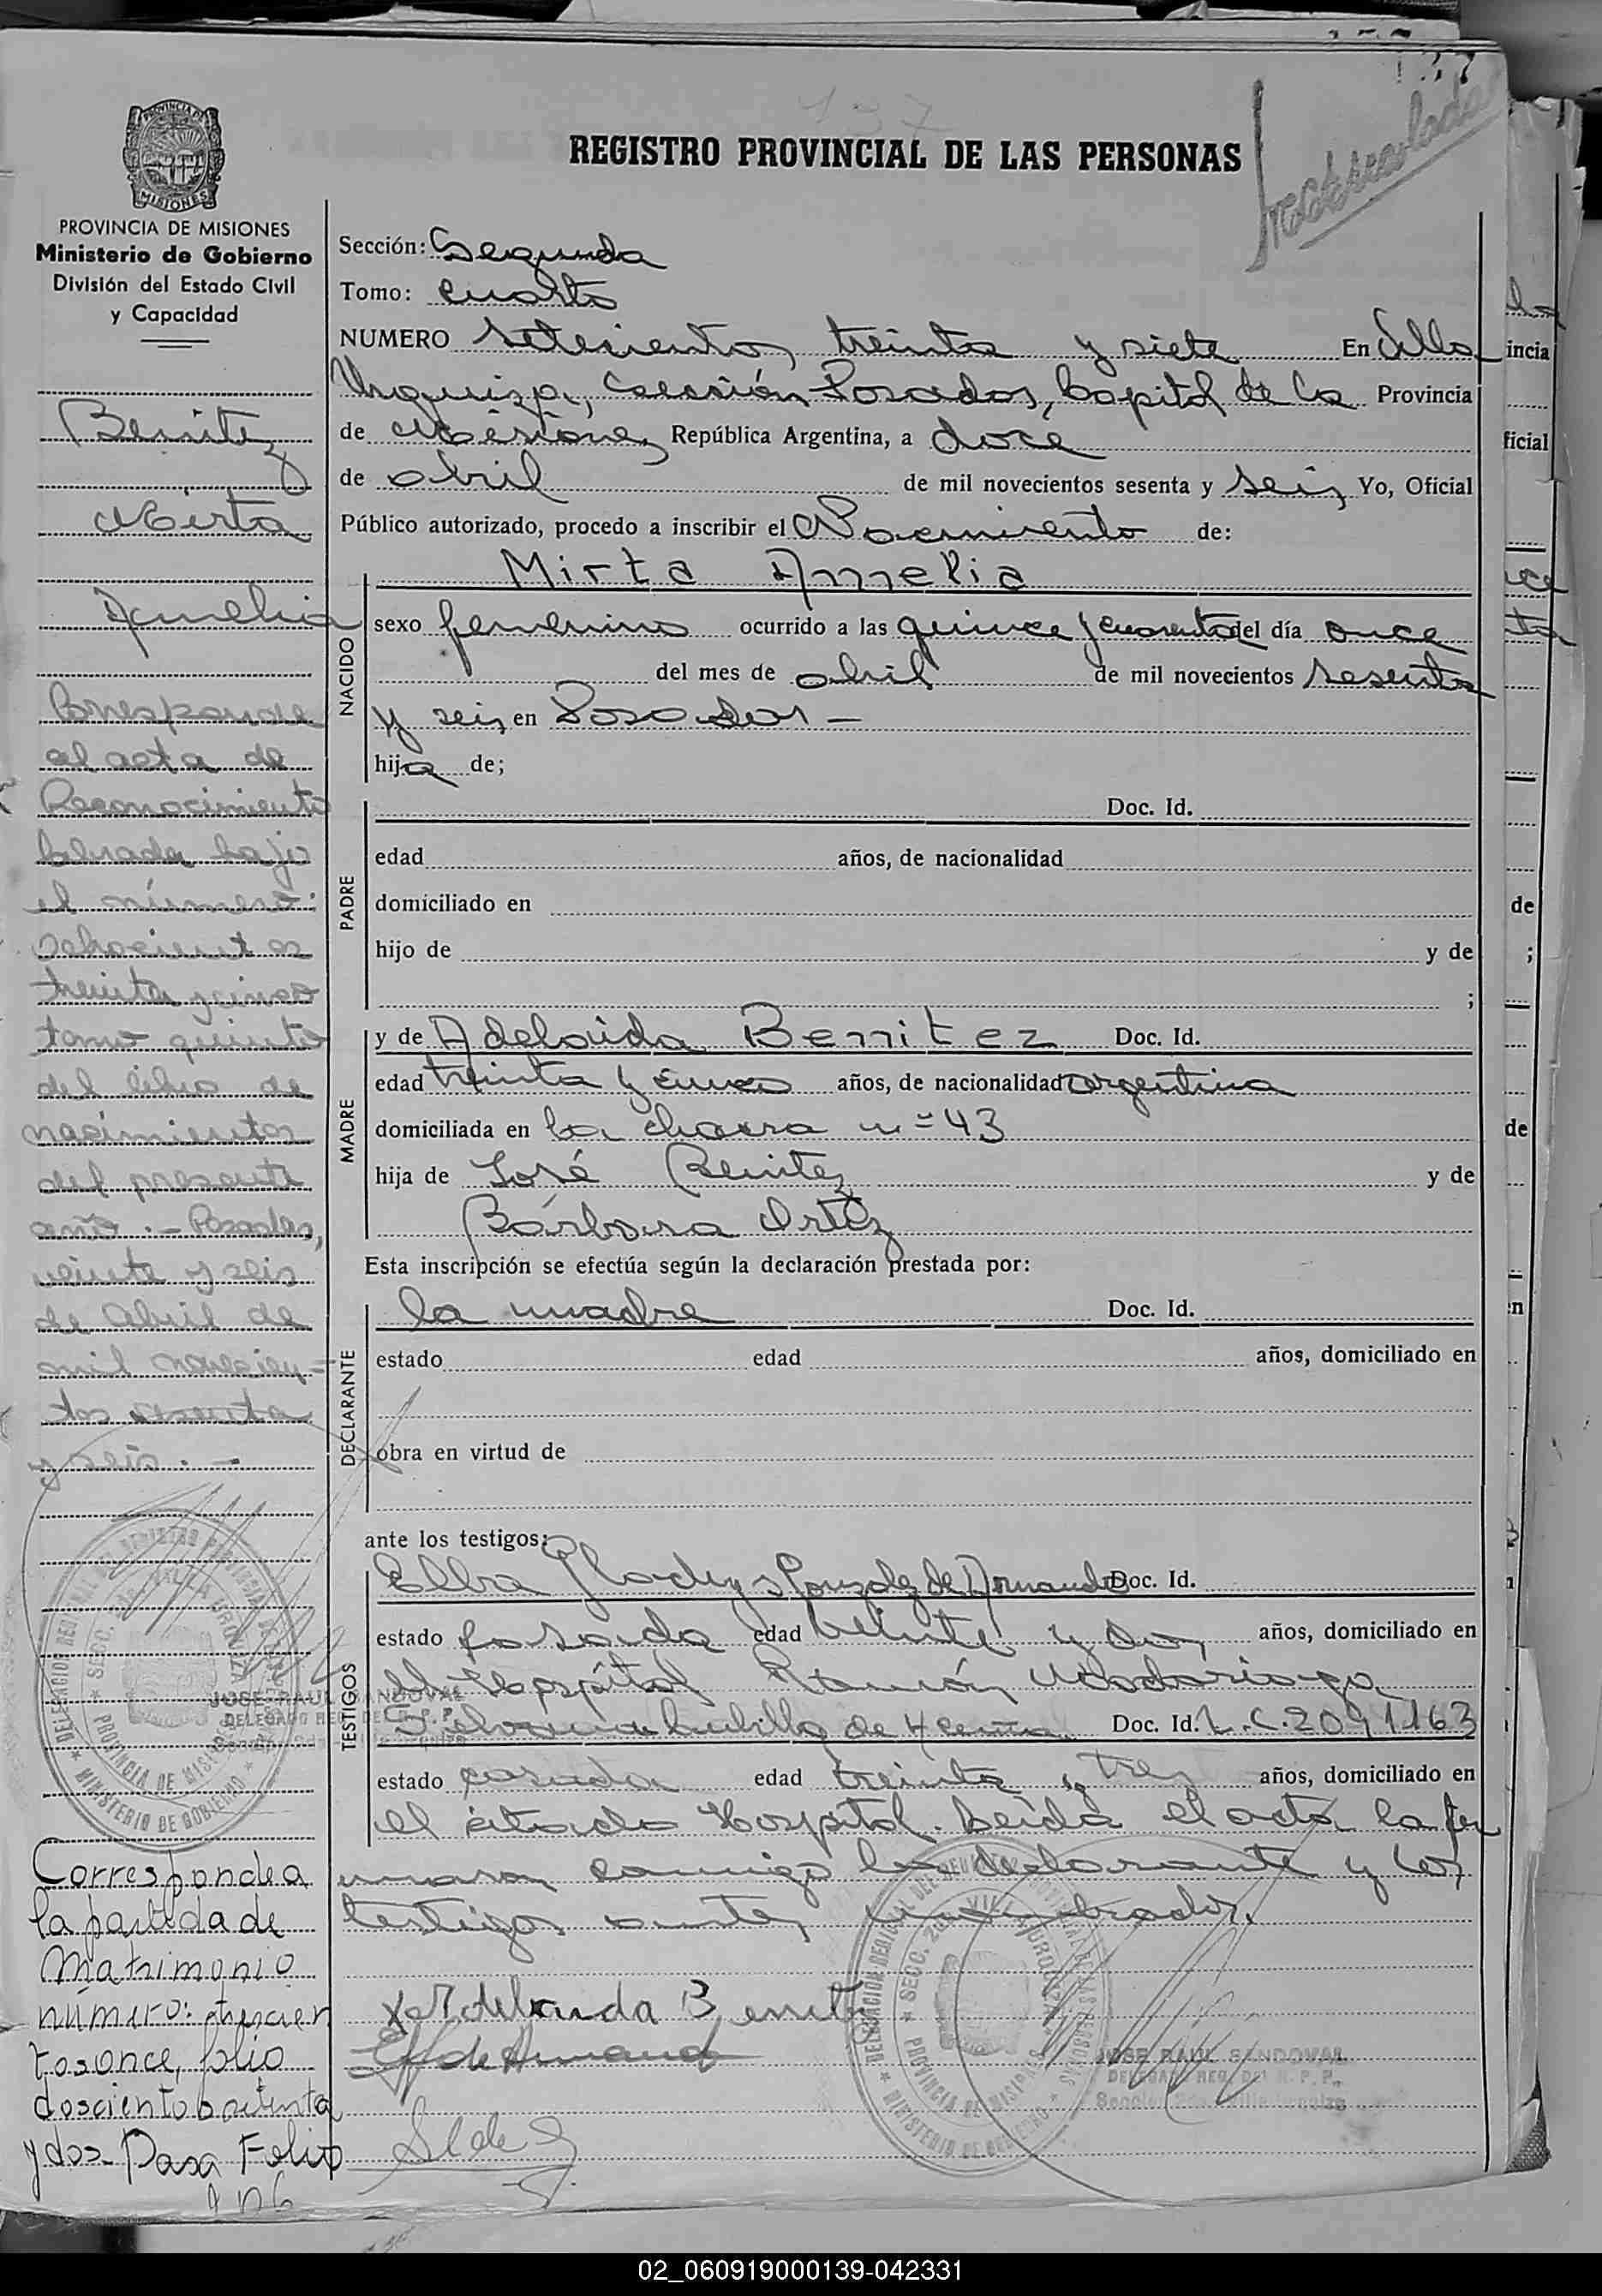 137
REGISTRO PROVINCIAL DE LAS PERSONAS
PROVINCIA DE MISIONES
Ministerio de Gobierno
División del Estado Civil
y Capacidad
Benitez
Mirta
Amelia
Corresponde
al acta de
Reconocimiento
labrada bajo
el número:
ochocientos
treinta y cinco
tomo quinto
del libro de
nacimientos
del presente
año.- Posadas,
veinte y seis
de Abril de
mil novecien-
tos sesenta
y seis.-
Corresponde a
la partida de
Matrimonio
número: trescien
tos once, folio
doscientos setenta
y dos- Pasa Folio
Sección: Segunda
Tomo: cuarto
NUMERO setecientos treinta y siete En Villa
Urquiza, Sección Posadas, Capital de la Provincia
de Misiones República Argentina, a doce
de abril de mil novecientos sesenta y seis Yo, Oficial
Público autorizado, procedo a inscribir el Nacimiento de:
NACIDO
Mirta Amelia
sexo femenino ocurrido a las quince y cuarenta del día once
del mes de abril de mil novecientos sesenta
y seis en Posadas -
hija de;
PADRE
Doc. Id.
edad años, de nacionalidad
domiciliado en
hijo de y de
;
MADRE
y de Adelaida Benitez Doc. Id.
edad treinta y cinco años, de nacionalidad argentina
domiciliada en la chacra n=43
hija de José Benitez y de
Bárbara Ortiz
Esta inscripción se efectúa según la declaración prestada por:
DECLARANTE
la madre Doc. Id.
estado edad años, domiciliado en
obra en virtud de
ante los testigos:
TESTIGOS
Elba Gladys Gonzalez de Doc. Id.
estado casada edad veinte y dos años, domiciliado en
el Hospital Ramón Madariaga
de Doc. Id. L.C.2091163
estado casada edad treinta y tres años, domiciliado en
el citado Hospital. Leída el acta la fir
maron conmigo la declarante y los
testigos antes nombrados.
Adelaida Benitez
JOSE RAUL SANDOVAL
DELEGADO REG. DEL R. P. P.
JOSE RAUL SANDOVAL
DELEGADO REG. DEL R. P. P.
02_060919000139-042331